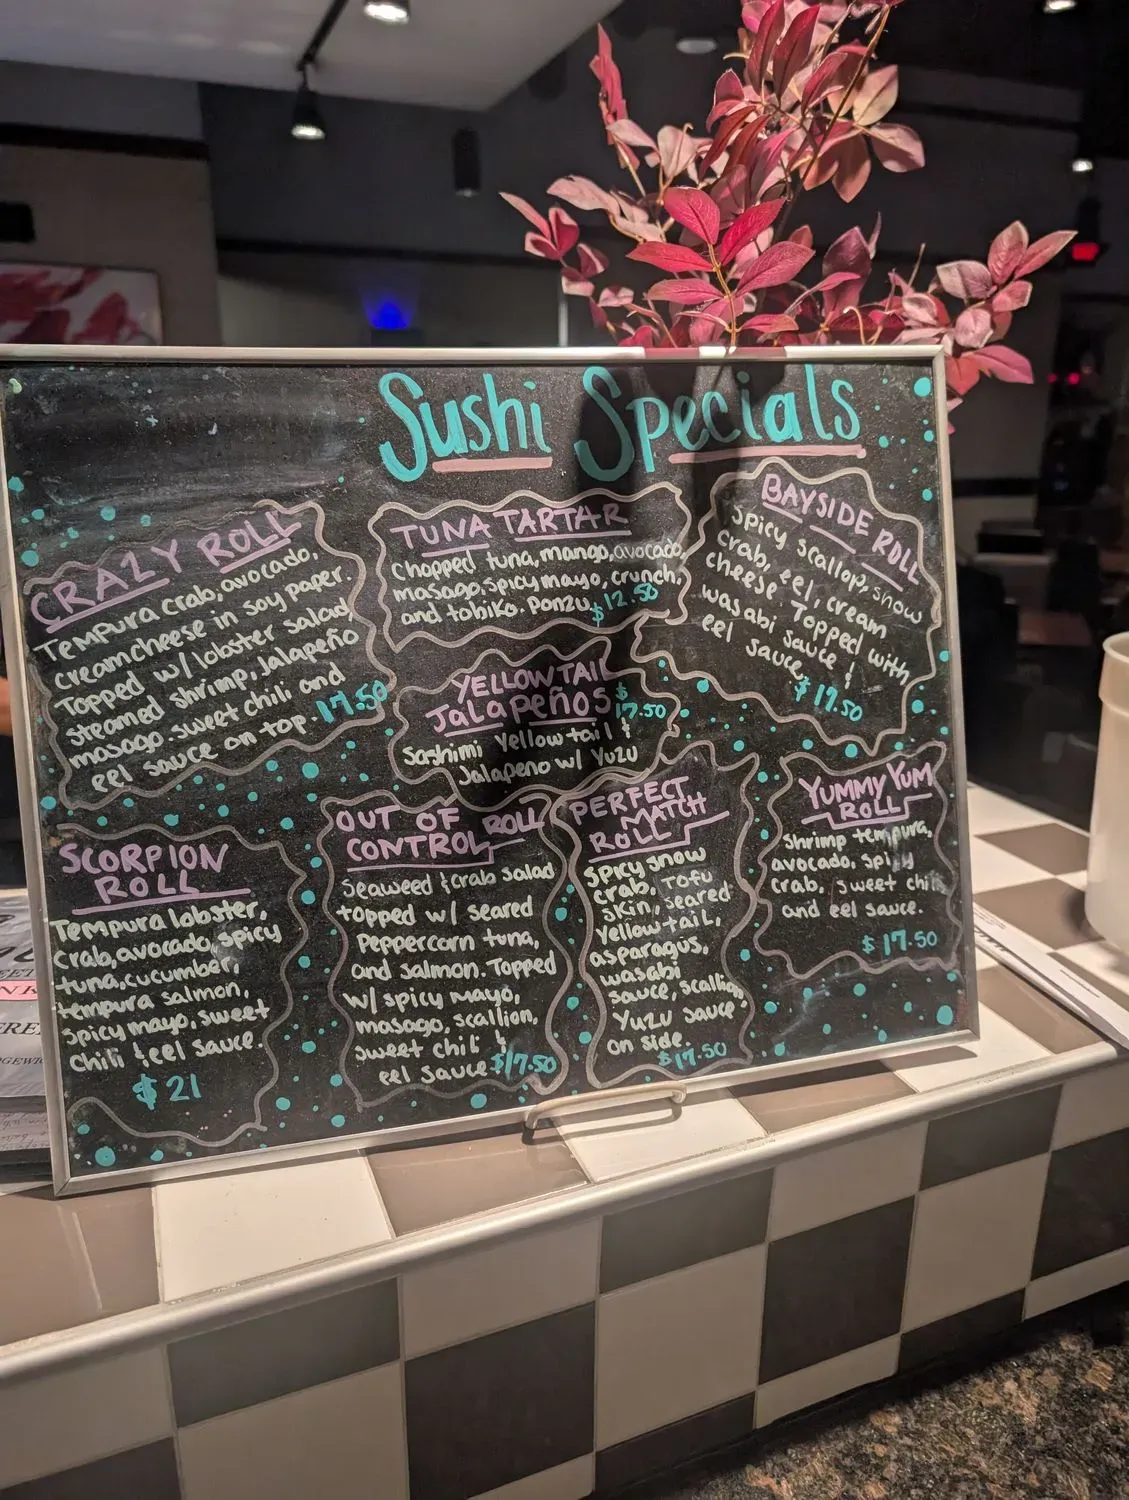 Sushi Specials
CRAZY ROLL
Tempura crab, avocado,
creamcheese in soy paper.
Topped w/ lobster salad
steamed shrimp, Jalapeño
masago sweet chili and
eel sauce on top. 17.50
TUNA TARTAR
Chopped tuna, mango, avocado,
masago, spicy mayo, crunch,
and tobiko. Ponzu $12.50
BAYSIDE ROLL
Spicy scallop, snow
crab, eel, cream
cheese. Topped with
wasabi sauce &
eel sauce $17.50
YELLOWTAIL
JALAPEÑOS $17.50
Sashimi Yellowtail &
Jalapeno w/ Yuzu
SCORPION
ROLL
Tempura lobster,
crab, avocado, spicy
tuna, cucumber,
tempura salmon,
spicy mayo, sweet
chili & eel sauce.
$21
OUT OF
CONTROL ROLL
Seaweed & crab salad
topped w/ seared
peppercorn tuna,
and salmon. Topped
w/ spicy mayo,
masago, scallion,
sweet chili &
eel sauce $17.50
PERFECT
MATCH
ROLL
Spicy snow
crab, Tofu
skin, seared
Yellowtail,
asparagus,
wasabi
sauce, scallion,
Yuzu sauce
on side.
$17.50
YUMMY YUM
ROLL
Shrimp tempura,
avocado, spicy
crab, sweet chili
and eel sauce.
$17.50